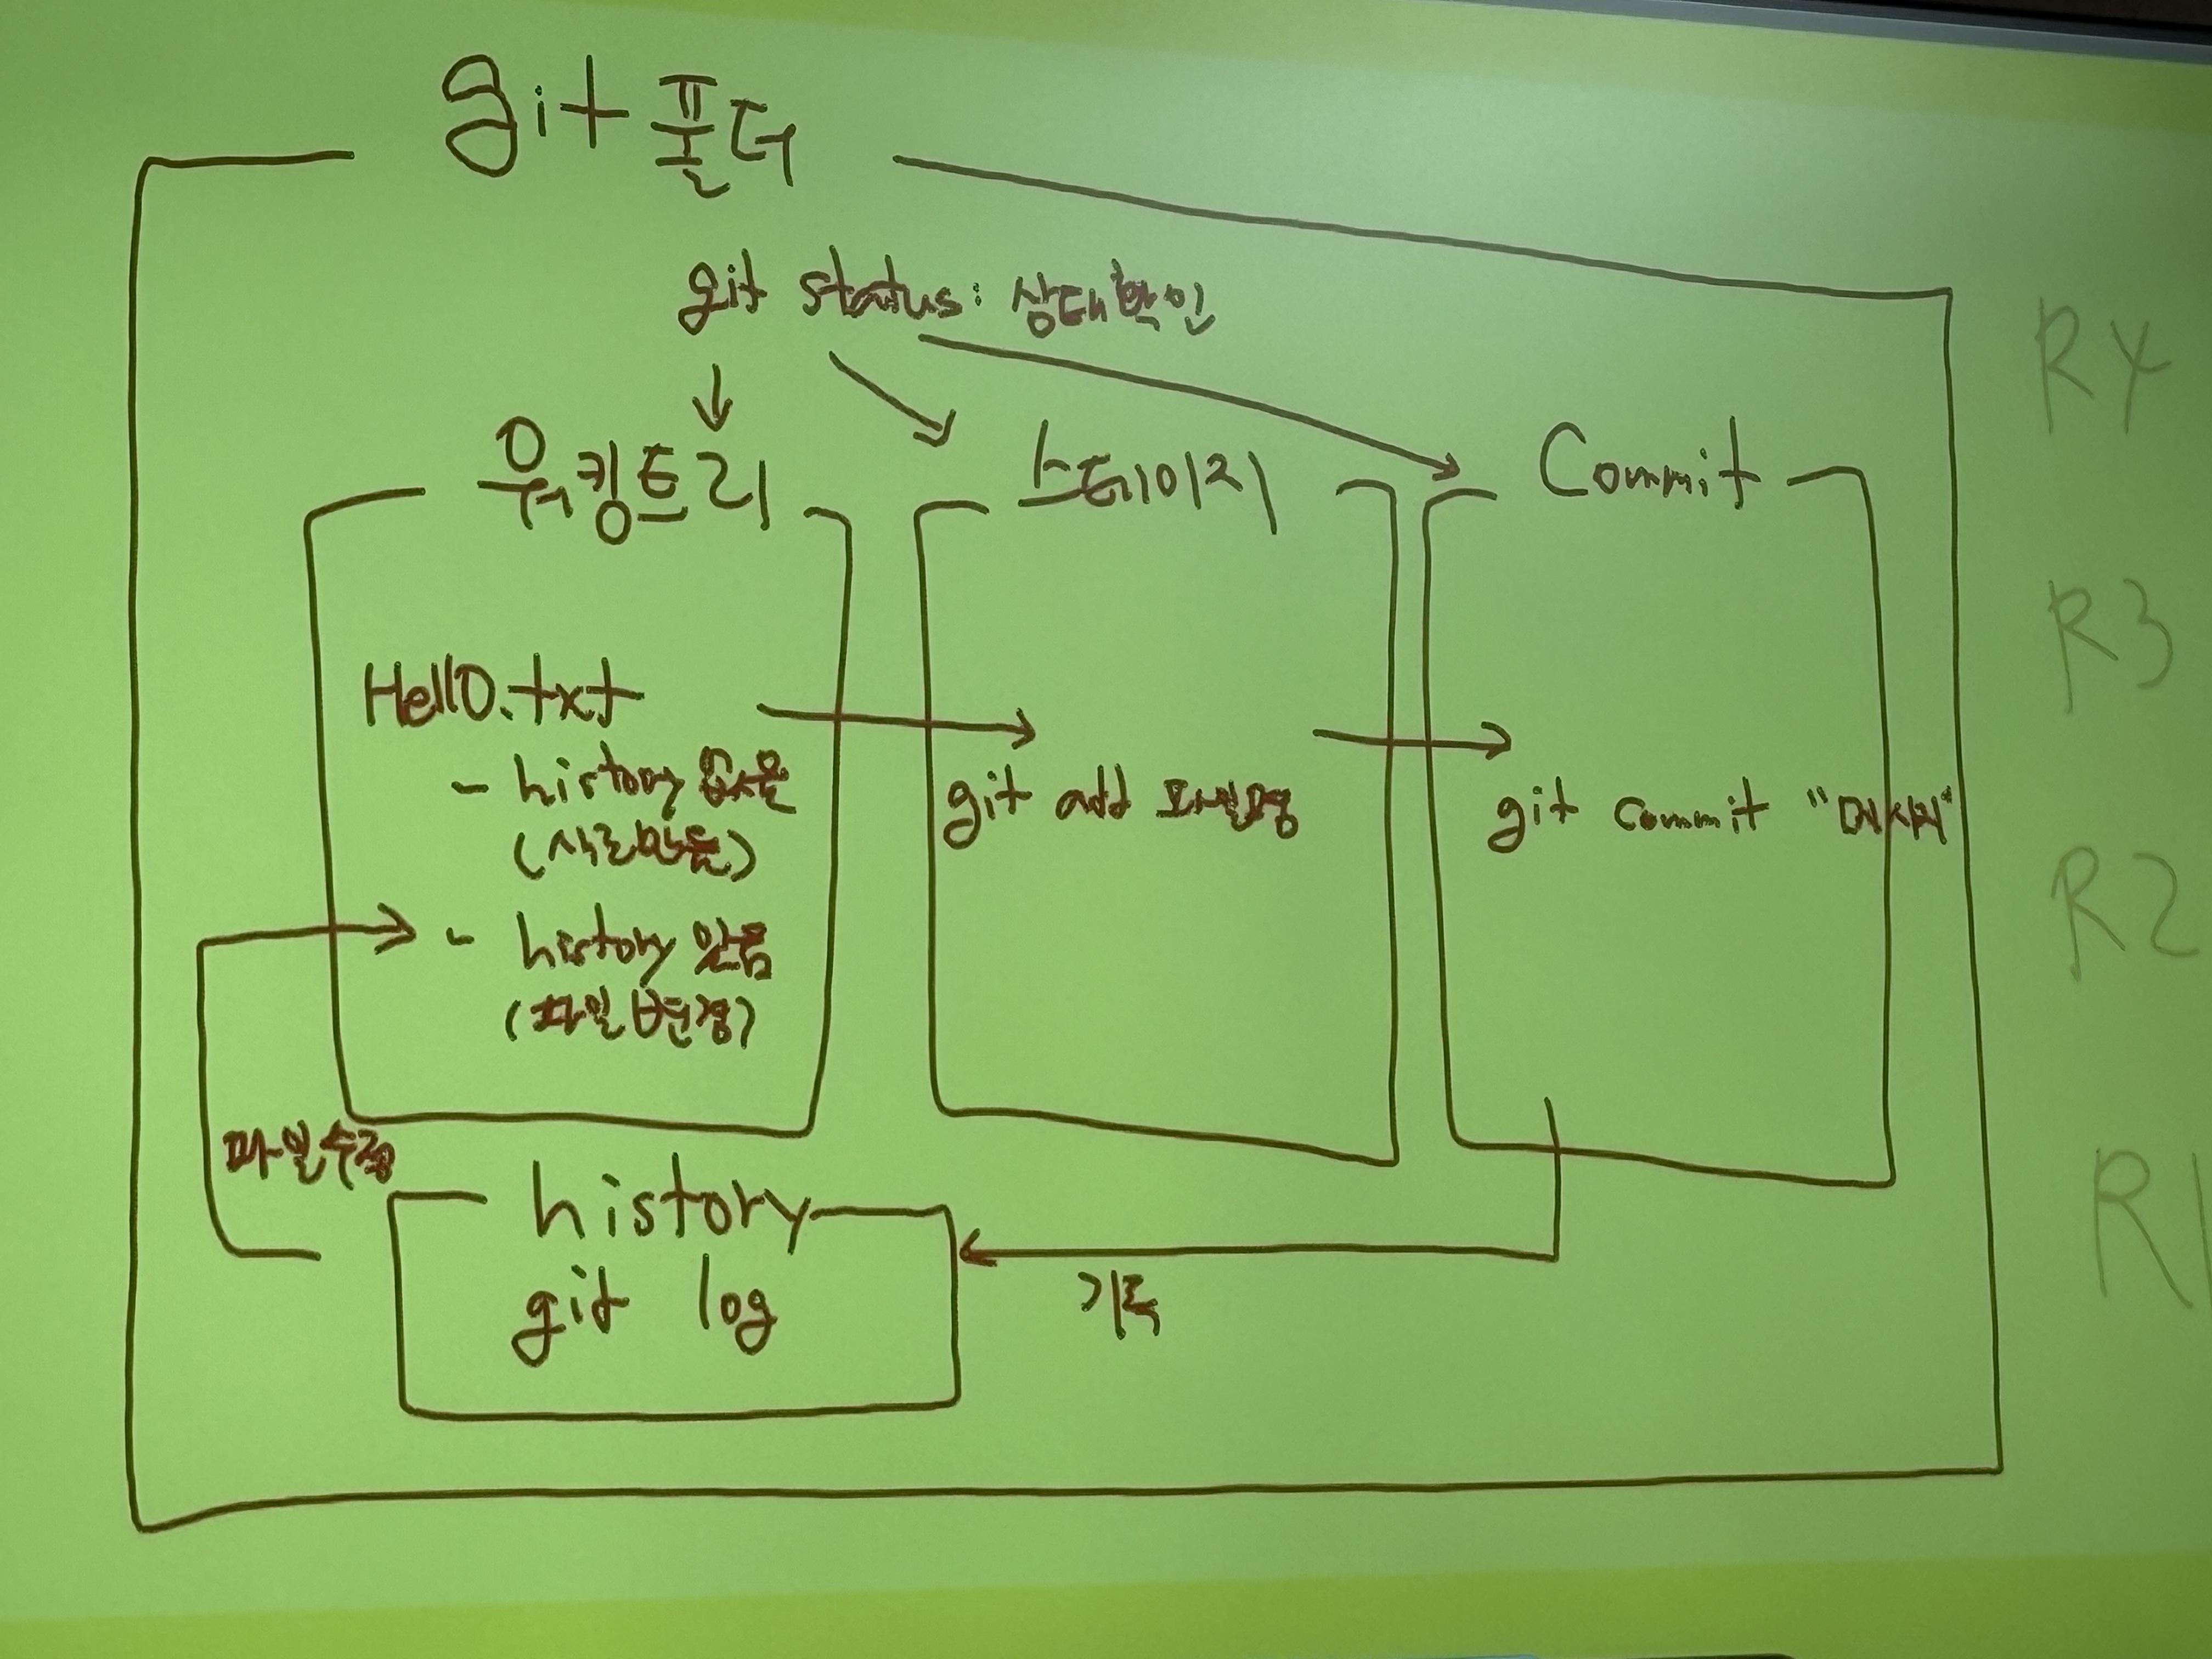 git 폴더
git status: 상태확인
워킹트리
스테이지
Commit
Hello.txt
- history 없음
(새로만듦)
- history 있음
(파일변경)
git add 파일명
git commit "메시지"
파일수정
history
git log
기록
R4
R3
R2
R1